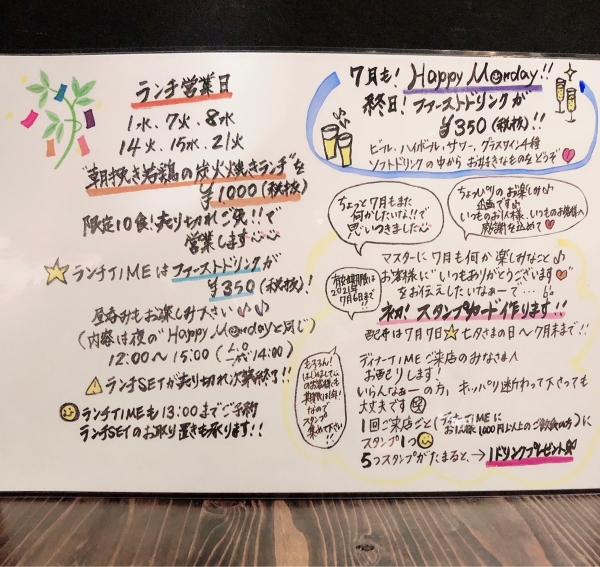 ランチ営業日
1水、7火、8水
14火、15水、21火
"朝挽き若鶏の炭火焼きランチ"を
¥1000(税抜)
限定10食!売り切れご免!!で
営業します〜
ランチTIMEはファーストドリンクが
¥350(税抜)!
昼呑みもお楽しみ下さい♪♪
(内容は夜の"Happy Mondayと同じ)
12:00〜15:00(L.O 14:00)
ランチSETが売り切れ次第終了!!
ランチTIMEも13:00までご予約
ランチSETのお取り置きも承ります!!
7月も! Happy Monday!!
終日!ファーストドリンクが
¥350(税抜)!!
ビール、ハイボール、サワー、グラスワイン4種
ソフトドリンクの中からお好きなものをどうぞ
ちょっと7月もまた
何かしたいな!!で
思いつきました
ちょっぴりのお楽しみ♪
企画です♪
いつものお1人様、いつものお客様へ
感謝を込めて
マスターに7月も何か楽しみなこと♪
お客様に"いつもありがとうございます"
をお伝えしたいなぁーで…
有効期限は
2021年
7月6日まで!!
初!スタンプカード作ります!!
配布は7月7日☆七夕さまの日〜7月末まで!!
ディナーTIMEご来店のみなさまへ
お配りします!
いらんなぁーの方、キッパリ断わって下さっても
大丈夫です
1回ご来店ごと(ディナーTIMEに
お1人様1,000円以上のご飲食の方)に
スタンプ1つ
5つスタンプがたまると、→1ドリンクプレゼント
もちろん!
はじめまして
のお客様も
期限は1年!
なので
スタンプ
集めて下さい!!